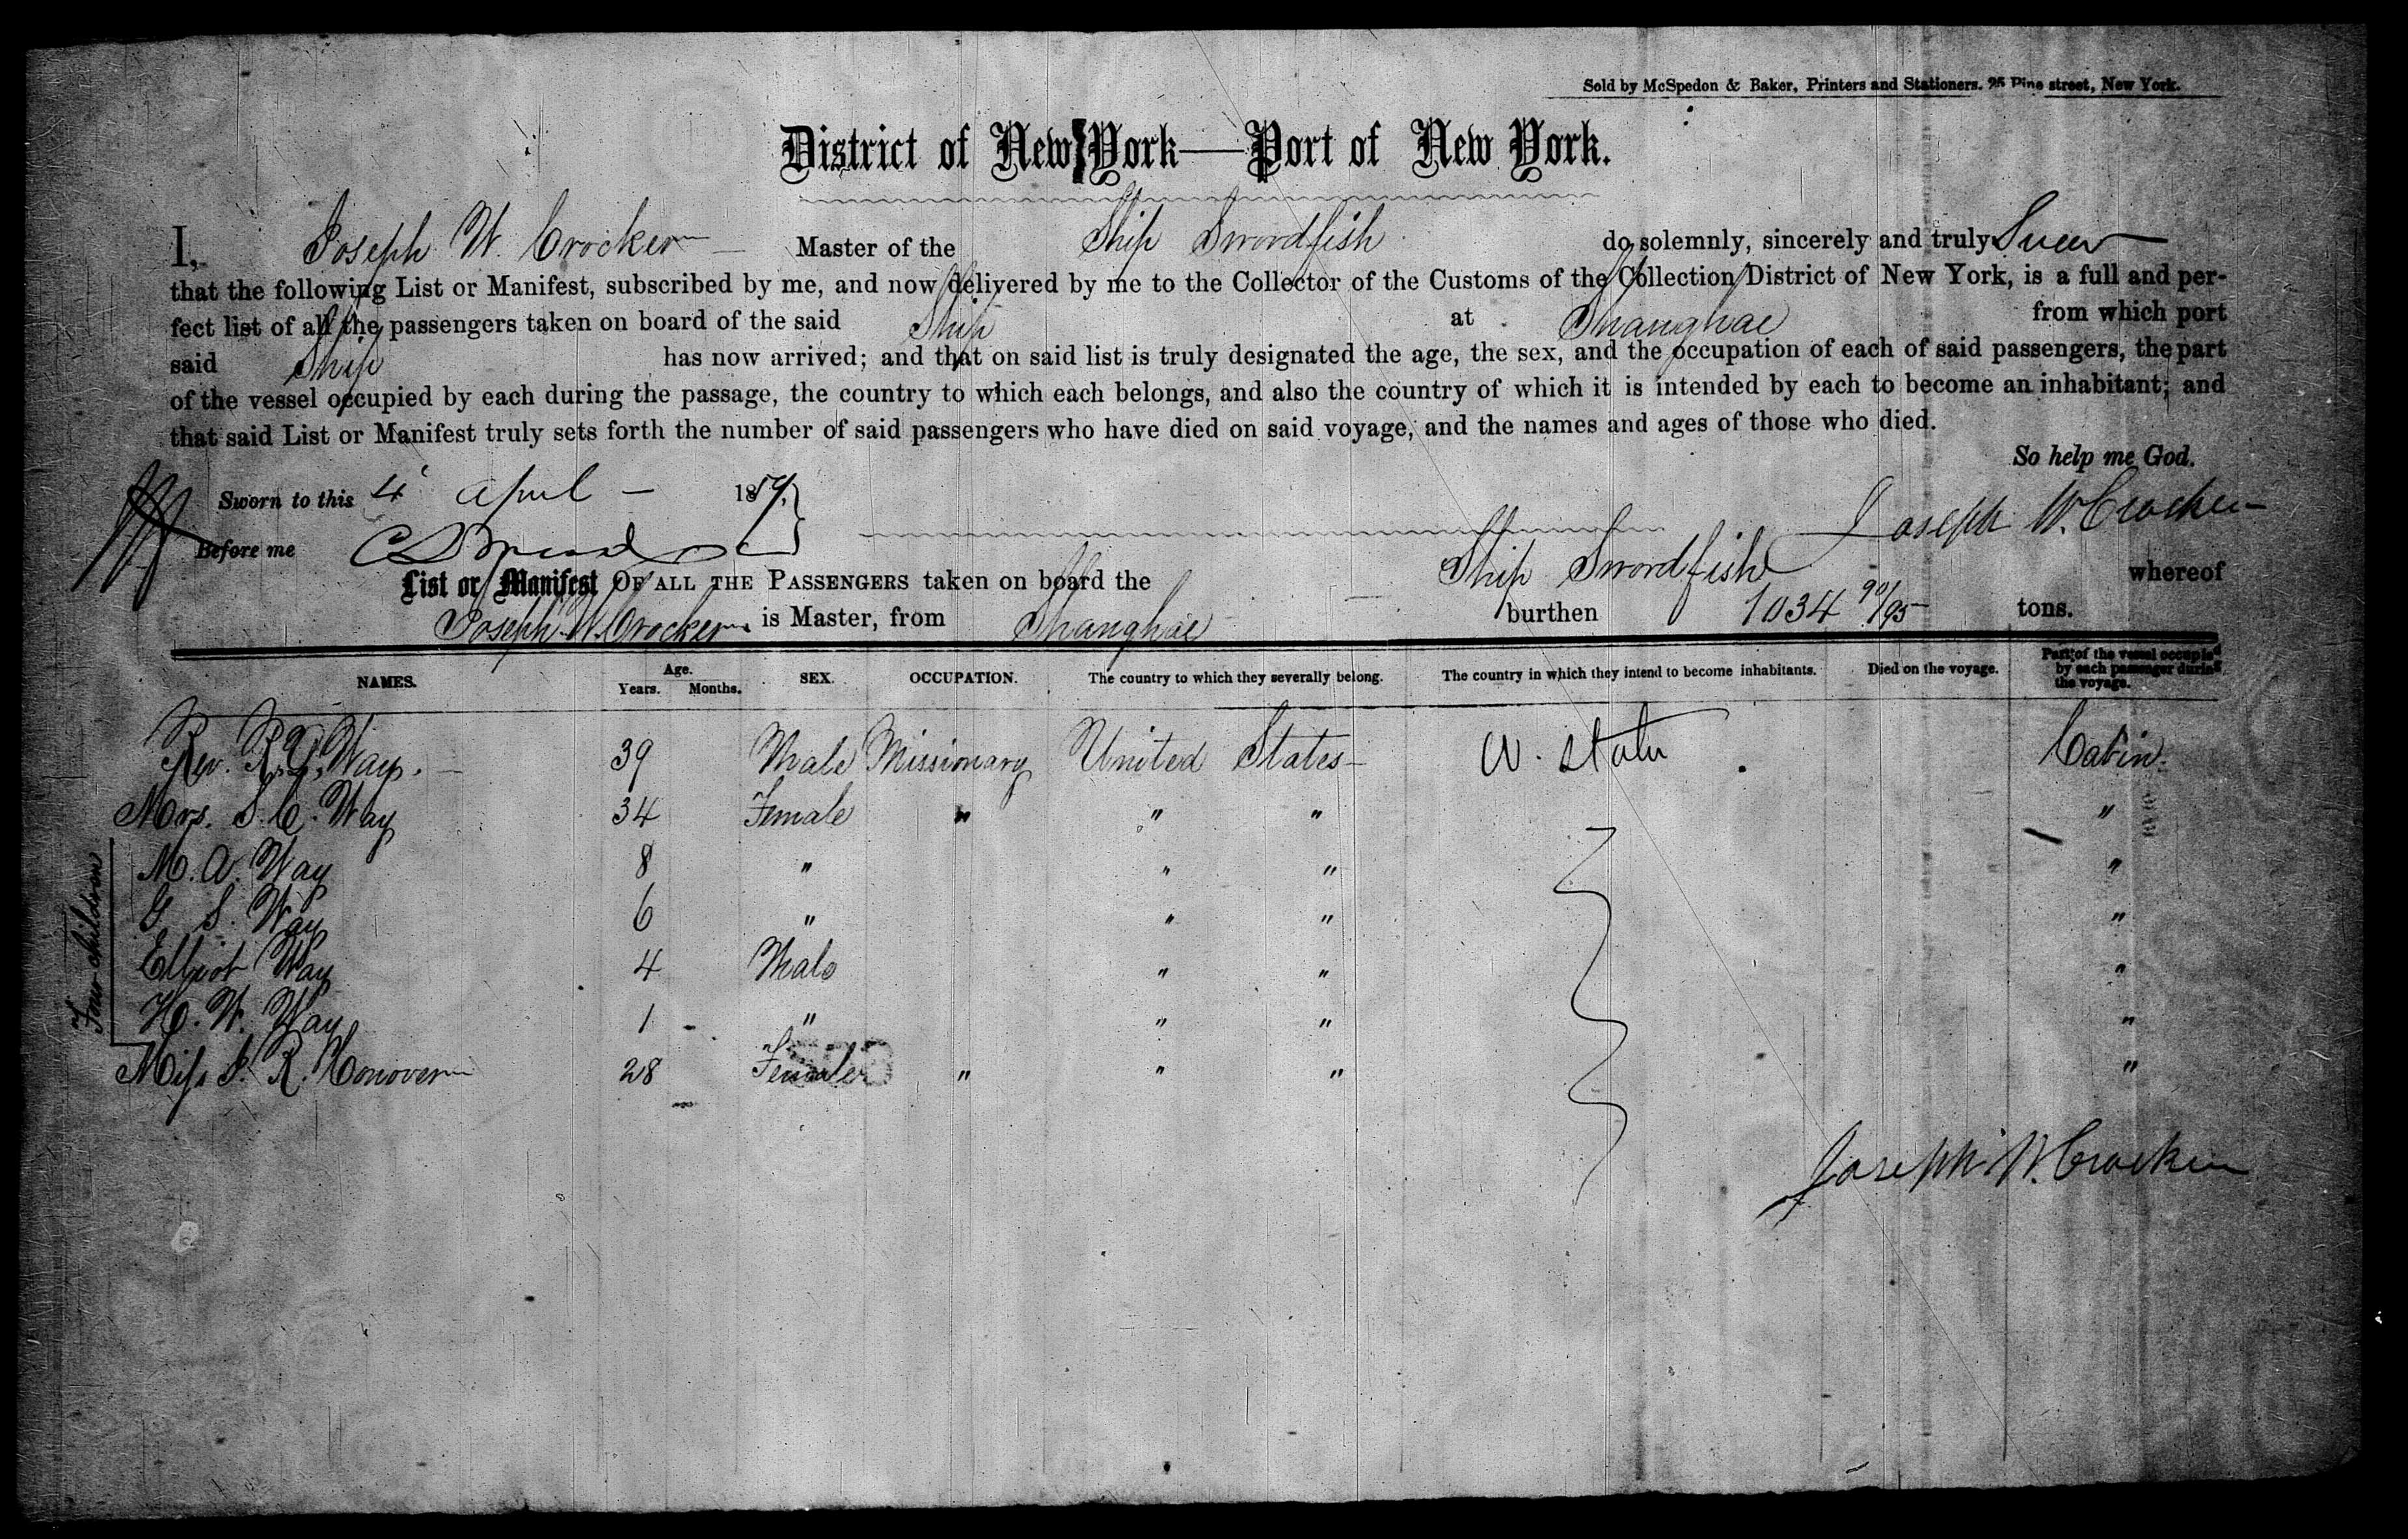 Sold by McSpedon & Baker, Printers and Stationers. 25 Pine street, New York.
District of New York—Port of New York.
I, Joseph W. Crocker Master of the Ship Swordfish do solemnly, sincerely and truly Swear
that the following List or Manifest, subscribed by me, and now delivered by me to the Collector of the Customs of the Collection District of New York, is a full and per-
fect list of all the passengers taken on board of the said Ship at Shanghae from which port
said Ship has now arrived; and that on said list is truly designated the age, the sex, and the occupation of each of said passengers, the part
of the vessel occupied by each during the passage, the country to which each belongs, and also the country of which it is intended by each to become an inhabitant; and
that said List or Manifest truly sets forth the number of said passengers who have died on said voyage, and the names and ages of those who died.
So help me God.
Sworn to this 4 April 1859. Joseph W. Crocker
Before me
List or Manifest OF ALL THE PASSENGERS taken on board the Ship Swordfish whereof
Joseph W. Crocker is Master, from Shanghae burthen 1034 90/95 tons.
NAMES. Age. Years. Months. SEX. OCCUPATION. The country to which they severally belong. The country in which they intend to become inhabitants. Died on the voyage. Part of the vessel occupied by each passenger during the voyage.
Rev. R. Q. Way. 39 Male Missionary United States U. States Cabin.
Mrs. S. C. Way 34 Female " " " "
Four children
M. A. Way 8 " " " "
G. S. Way 6 " " " "
Elliot Way 4 Male " " "
H. W. Way 1 " " " "
Miss S. R. Conover 28 Female " " " "
Joseph W. Crocker